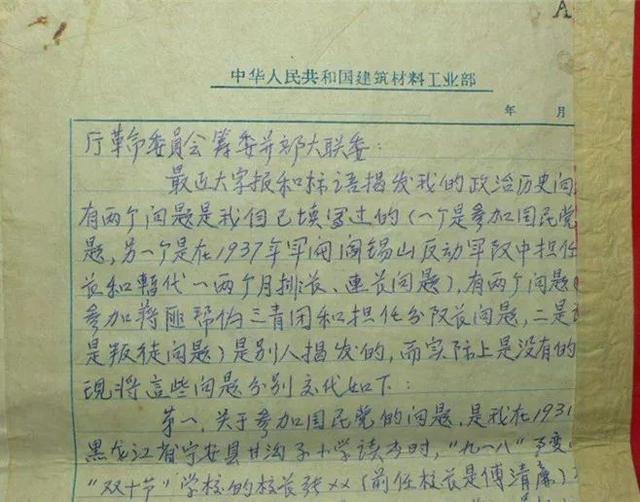 A
中华人民共和国建筑材料工业部
年 月
厅革命委員会筹委并部大联委：
最近大字报和标语揭发我的政治历史问
有两个问题是我自己填写过的（一个是参加国民党
题，另一个是在1937年军阀阎锡山反动军队中担任
长和暂代一两个月排长、連长问题），有两个问题
参加蒋匪帮伪三青团和担任分队长问题，二是
是叛徒问题）是别人揭发的，而实际上是没有的
现将这些问题分别交代如下：
第一，关于参加国民党的问题，是我在1931
黑龙江省宁安县甘沟子小学读书时，“九一八”事变
“双十节”学校的校长张××（前任校长是傅清廉）